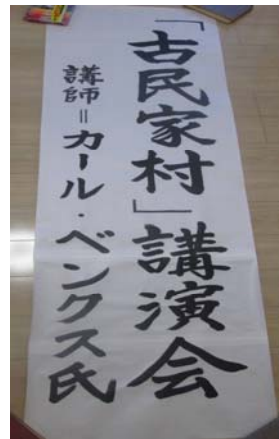 「古民家村」講演会
講師＝カール・ベンクス氏